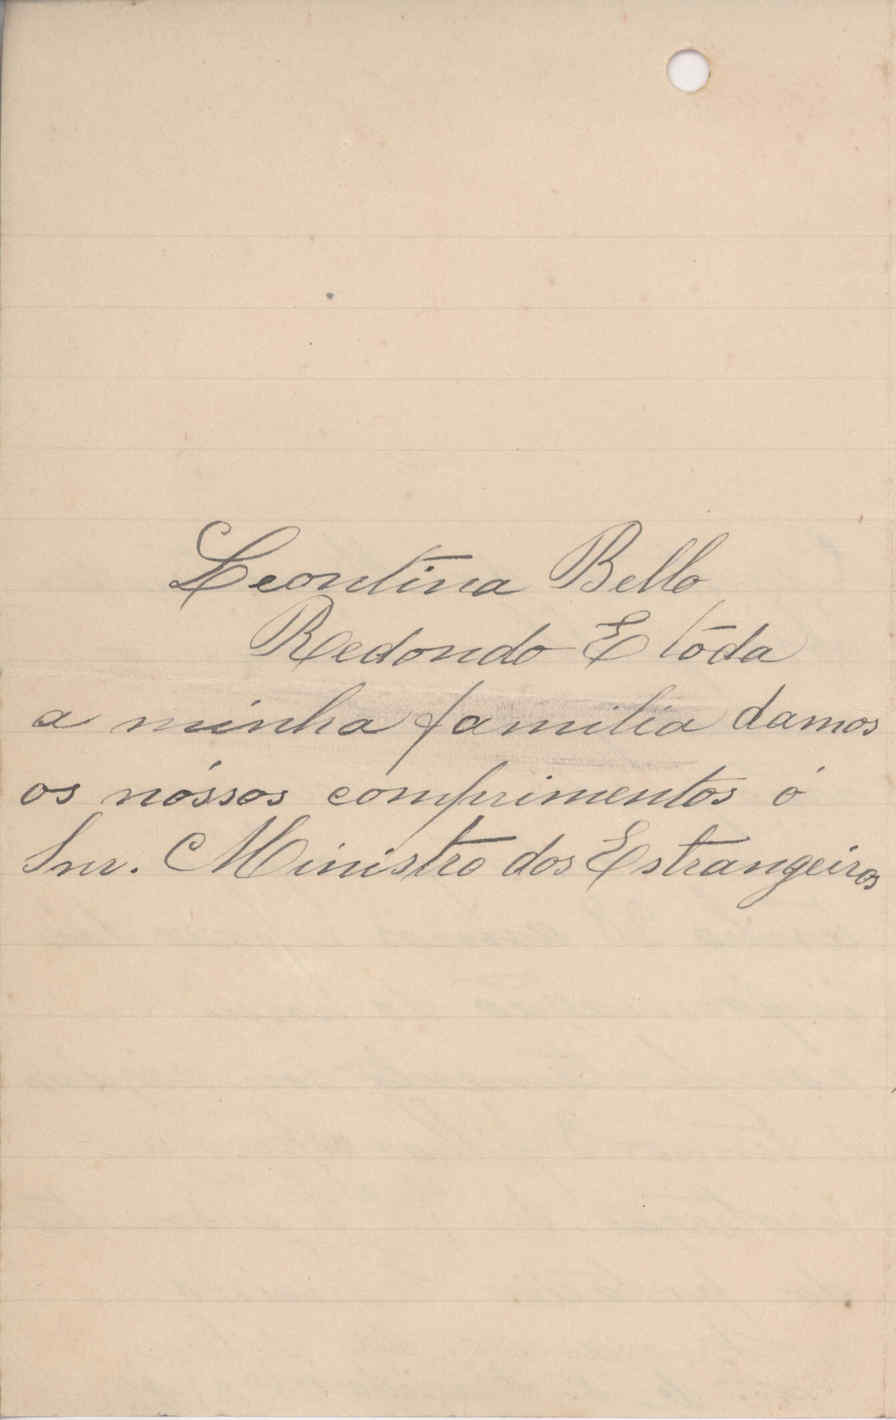 Leontina Bello
Redondo E tōda
a minha familia damos
os nóssos comprimentos ó
Snr. Ministro dos Estrangeiros